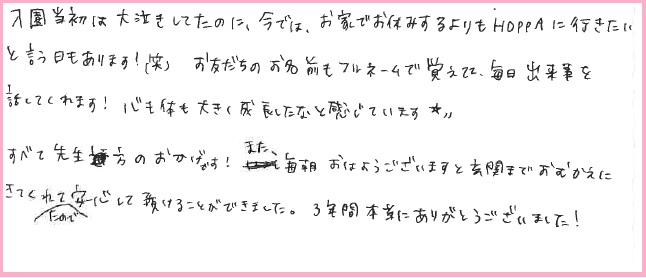 入園当初は大泣きしてたのに、今では、お家でお休みするよりもHOPPAに行きたい
と言う日もあります！(笑) お友だちのお名前もフルネームで覚えてて、毎日出来事を
話してくれます！心も体も大きく成長したなと感じています★〃
すべて先生方のおかげです！また、毎朝おはようございますと玄関までおむかえに
きてくれてたので安心して預けることができました。3年間本当にありがとうございました！